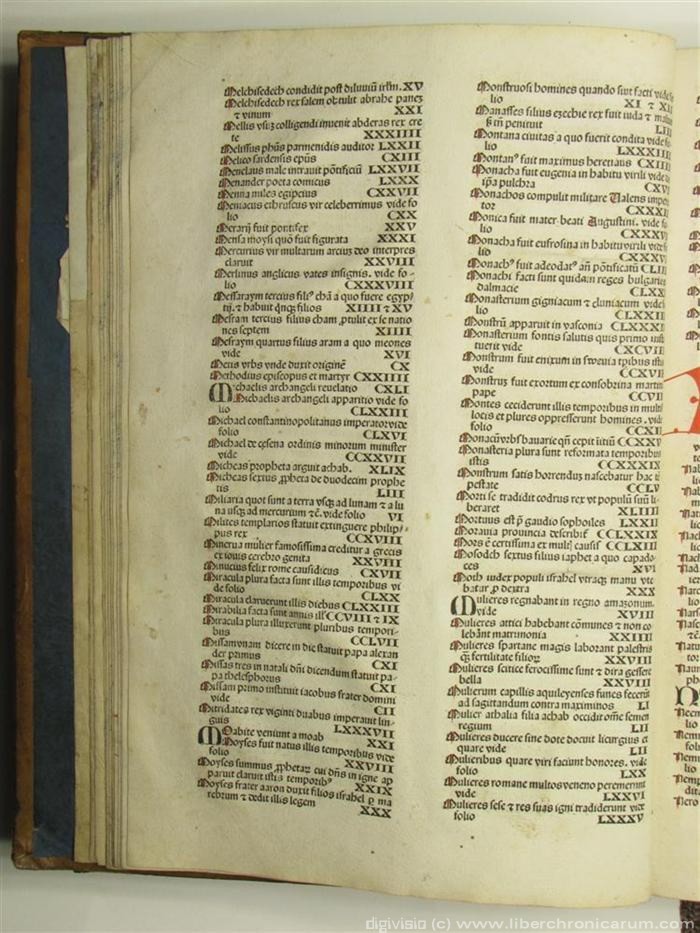 Melchisedech condidit post diluuiũ irlm. XV
Melchisedech rex salem obtulit abrahe panez
⁊ vinum XXI
Mellis vsuz colligendi inuenit abderas rex cre
te XXXIIII
Melissus phũs parmenidis auditor LXXII
Melico sardensis epũs CXIII
Menelaus male intrauit põtificiũ LXXVII
Menander poeta comicus LXXX
Menna miles egipcius CXXVII
Meniacus ethruscus vir celeberrimus vide fo
lio CXX
Merarij fuit pontifex XXV
Mensa moysi quõ fuit figurata XXXI
Mercurius vir multarum arciuz deo interpres
claruit XXVIII
Merlinus anglicus vates insignis. vide fo-
lio CXXXVIII
Messaraym tercius filiꝰ chã a quo fuere egyp
tij. ⁊ habuit qnqꝫ filios XIIII ⁊ XV
Mesram tercius filius cham ꝓtulit ex se natio
nes septem XIIII
Mesraym quartus filius aram a quo meones
vide XVI
Metis vrbs vnde duxit originẽ CX
Methodius episcopus et martyr CXXIIII
Michaelis archangeli reuelatio CXLI
Michaelis archangeli apparitio vide fo
lio CLXXIII
Michael constantinopolitanus imperator vide
folio CLXVI
Michael de cesena ordinis minorum minister
vide CCXXVII
Micheas propheta arguit achab. XLIX
Micheas sextus ꝓpheta de duodecim prophe
tis LIII
Miliaria quot sunt a terra vsqꝫ ad lunam ⁊ a lu
na usqꝫ ad mercurium ⁊c̃. vide folio VI
Milites templarios statuit extinguere philip-
pus rex CCXVIII
Minerua mulier famosissima creditur a grecis
ex iouis cerebro genita XXVIII
Minucius felix rome causidicus CXVII
Miracula plura facta sunt illis temporibus vi
de folio CLXX
Miracula claruerunt illis diebus CLXXIII
Mirabilia facta sunt annis illꝭ CCVIII ⁊ IX
Miracula plura illuxerunt pluribus tempori-
bus CCLVII
Missam vnam dicere in die statuit papa alexan
der primus CXI
Missas tres in natali dñi dicendum statuit pa-
pa thelesphorus CXI
Missam primo instituit iacobus frater domini
vide CII
Mitridates rex viginti duabus imperauit lin-
guis LXXXVII
Moabite veniunt a moab XXI
Moyses fuit natus illis temporibus vide
folio XXVIII
Moyses summus ꝓphetaꝝ cui dñs in igne ap
paruit claruit istis temporibꝰ XXIX
Moyses frater aaron duxit filios israhel ꝑ ma
re rubrum ⁊ dedit illis legem XXX
Monstruosi homines quando siut facti vide fo
lio XI ⁊ XII
Manasses filius ezechie rex fuit iuda ⁊
penituit
Montana ciuitas a quo fuerit condita vide fo
lio LXXXIIII
Montanꝰ fuit maximus hereticus CXIIII
Monacha fuit eugenia in habitu virili vide
ip̃a pulchra CXV
Monachos compulit militare Valens impera
tor CXXXI
Monica fuit mater beati Augustini. vide fo
lio CXXXV
Monacha fuit eufrosina in habitu virili vide fo
lio CXXXV
Monachꝰ fuit adeodatꝰ añ põtificatũ CLII
Monachi facti sunt quidam reges bulgarie
dalmacie CLXX
Monasterium gigniacum ⁊ cluniacum vide
lio CLXXII
Monstrũ apparuit in vasconia CLXXXI
Monasterium fontis salutis quis primo insti
tuerit vide CXCVII
Monstrum fuit enixum in sweuia tpibus illis
vide CCXVII
Monstruz fuit exortum ex consobrina martini
pape CCVII
Montes ceciderunt illis temporibus in multis
locis et plures oppresserunt homines. vide
folio CCXII
Monacũ vrbs bauarie qñ cepit initiũ CCXXV
Monasteria plura sunt reformata temporibus
istis CCXXXIX
Monstrum satis horrenduz nascebatur hac tẽ
pestate CCLV
Morti se tradidit codrus rex vt populũ suũ li-
beraret XLIIII
Mortuus est p̃ gaudio sophoiles LXXII
Morauia prouincia describit̃ CCLXXIX
Mors ẽ certissima ex multꝭ causis CCLXIII
Mosoch sextus filius iaphet a quo capado-
ces XVI
Moth iudex populi israhel vtraqꝫ manu vte
batur ꝓ dextra XXX
Mulieres regnabant in regno amazonum.
vide XVIII
Mulieres attici habebant cõmunes ⁊ non co
lebãnt matrimonia XXIIII
Mulieres spartane magis laborant palestris
qꝫ fertilitate filioꝝ XXVIII
Mulieres scitice ferocissime sunt ⁊ dira gessere
bella XXVIII
Mulierum capillis aquileyenses funes fecerũt
ad sagittandum contra maximinos LI
Mulier athalia filia achab occidit om̃e semen
regium LII
Mulieres ducere sine dote docuit licurgus et
quare vide LII
Mulieribus quare viri faciunt honores. vide
folio LXX
Mulieres romane multos veneno peremerunt
vide LXXVI
Mulieres sese ⁊ res suas igni tradiderunt vide
folio LXXXV
digivisio (c) www.liberchronicarum.com